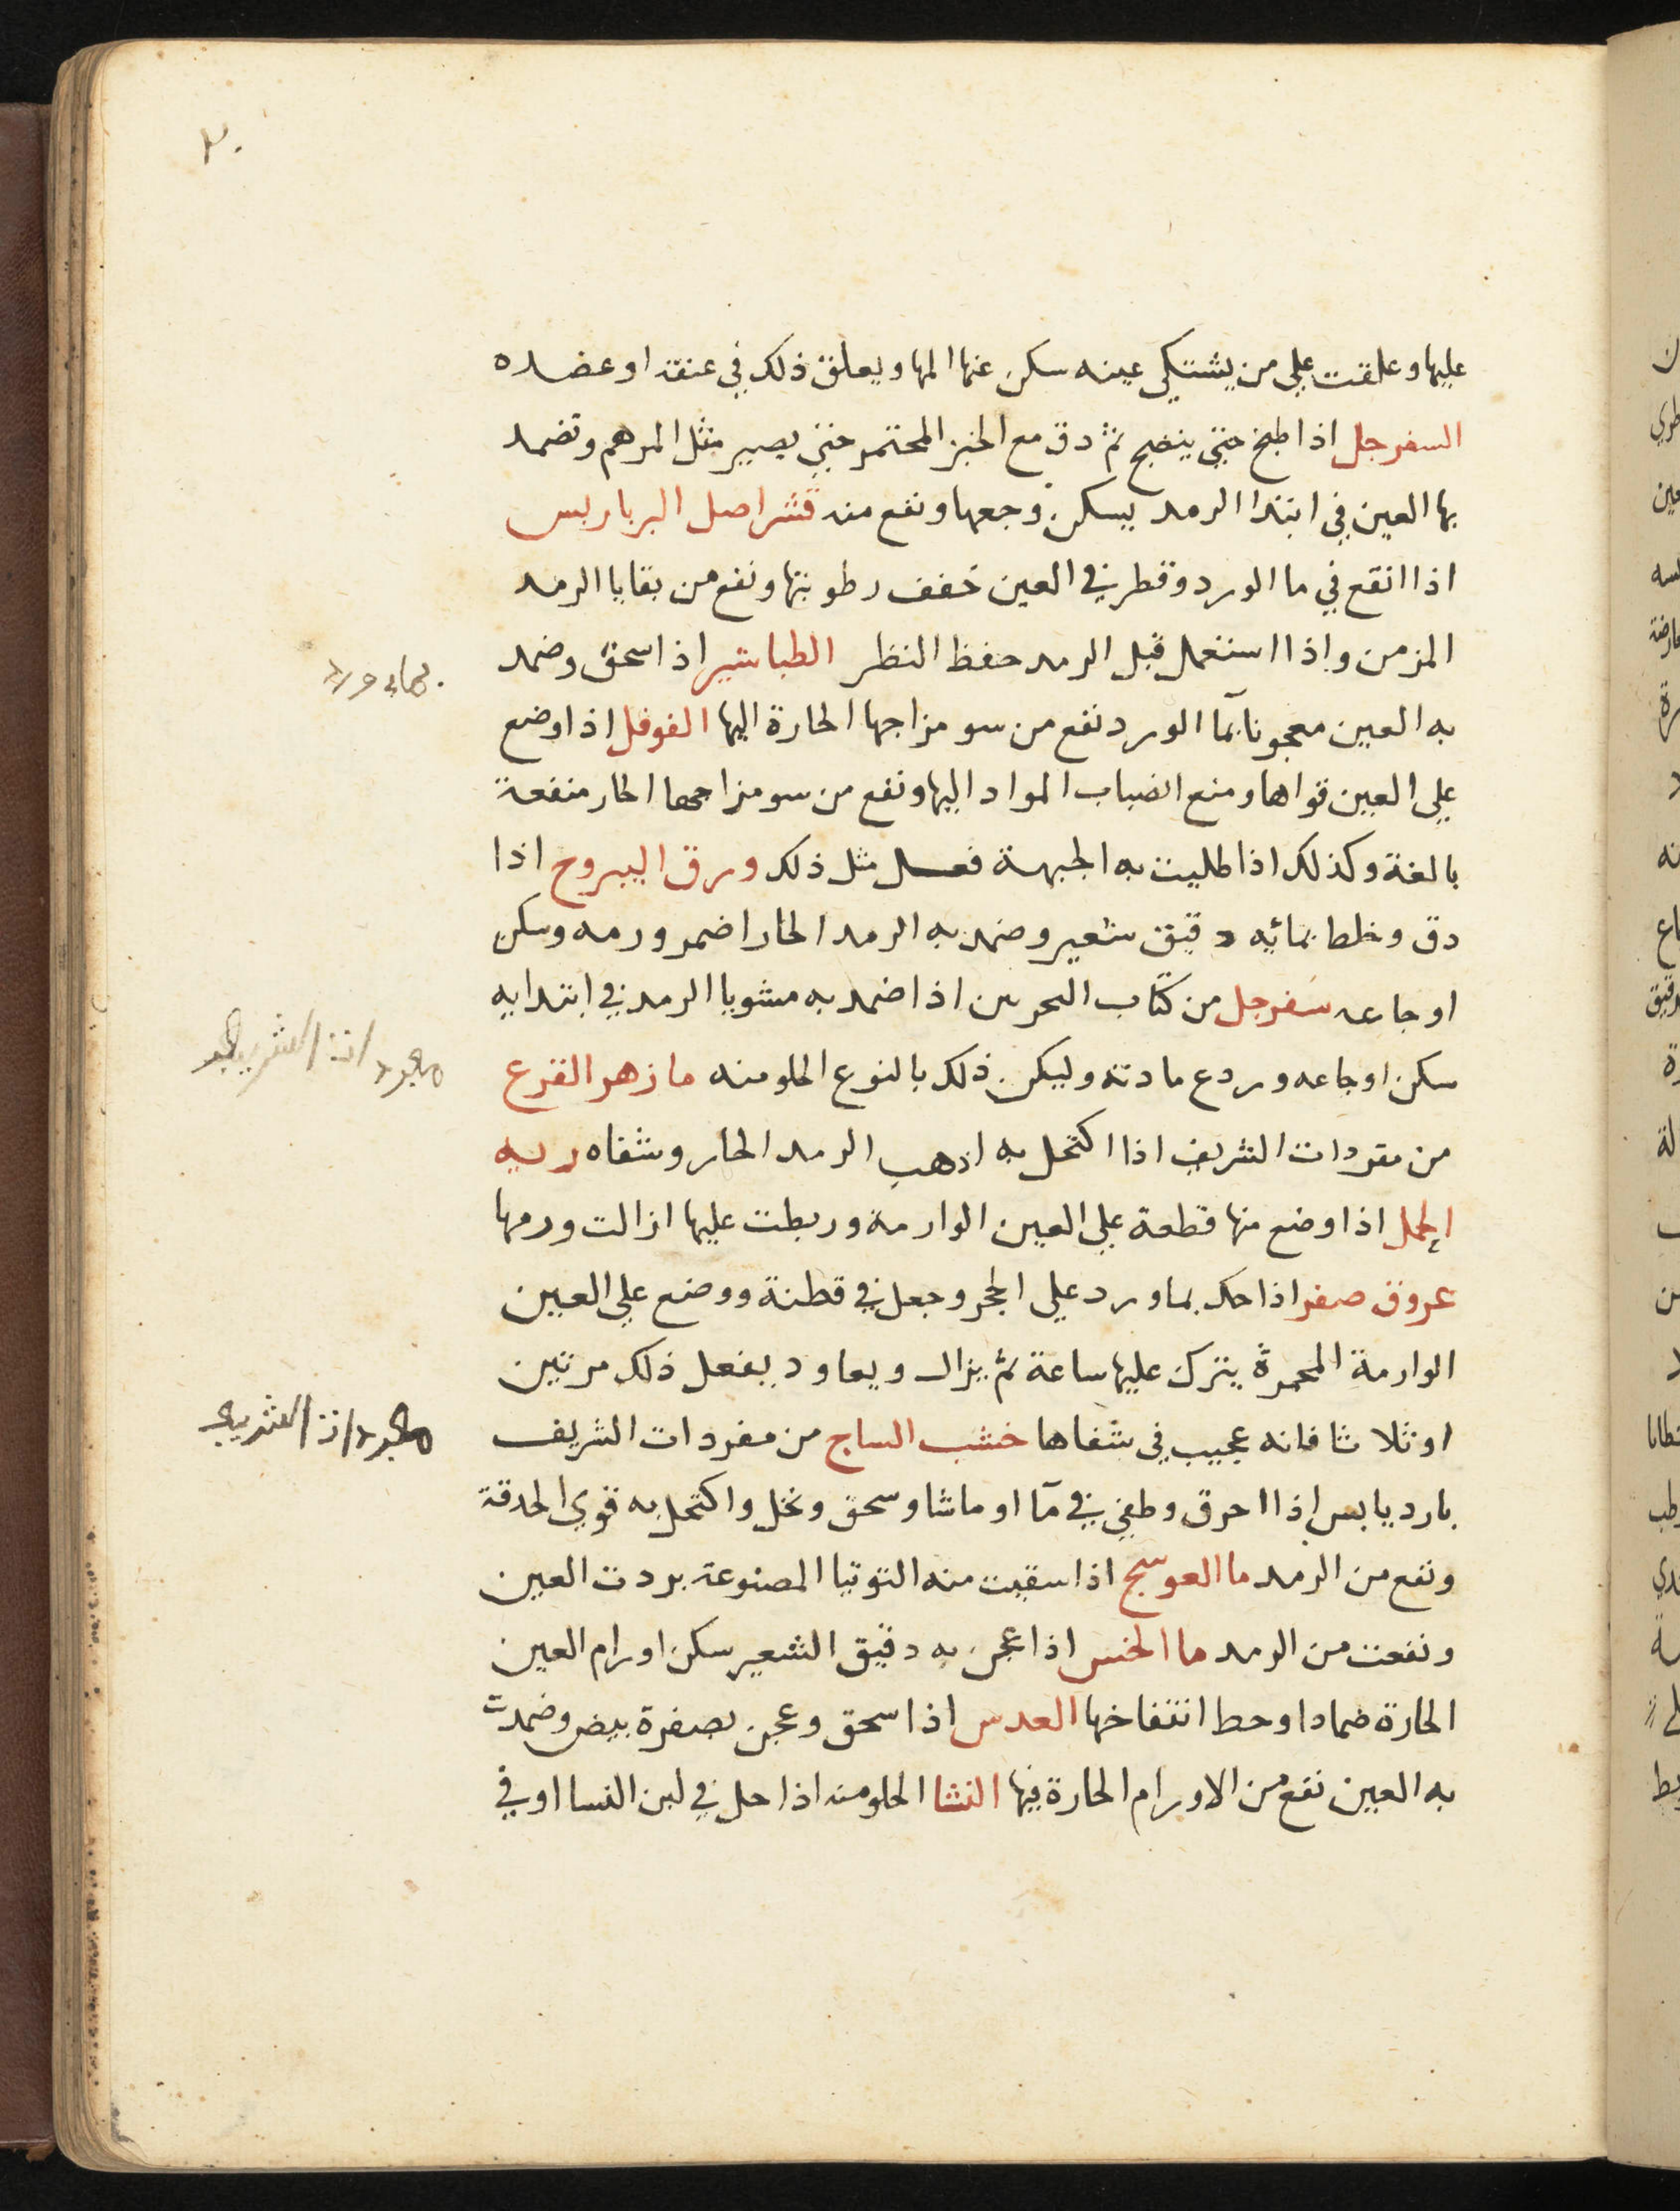 ٢٠
عليها وعلقت علي من يشتكي عينه سكن عنها المها ويعلق ذلك في عنقه او عضده
السفرجل اذا طبخ حتي ينضج ثم دق مع الخبز المختمر حتي يصير مثل المرهم وتضمد
بها العين في ابتدا الرمد يسكن وجعها ونفع منه قشر اصل البرباريس
اذا انقع في ما الورد وقطر في العين خفف رطوبتها ونفع من بقايا الرمد
المزمن واذا استعمل قبل الرمد حفظ النظر الطباشير اذا سحق وضمد
به العين معجونا بما الورد نفع من سو مزاجها الحارة اليها الفوفل اذا وضع
علي العين قواها ومنع انضباب المواد اليها ونفع من سو مزاجها الحار منفعة
بالغة وكذلك اذا طليت به الجبهة فعل مثل ذلك ورق اليبروح اذا
دق وخلط بمائه دقيق شعير وضمد به الرمد الحار اضمر ورمه وسكن
اوجاعه سفرجل من كتاب التجربتين اذا ضمد به مشويا الرمد في ابتدايه
سكن اوجاعه وردع مادته وليكن ذلك بالنوع الحلو منه ما زهر القرع
من مفردات الشريف اذا اكتحل به اذهب الرمد الحار وشفاه ريه
الجمل اذا وضع منها قطعة علي العين الوارمة وربطت عليها ازالت ورمها
عروق صفر اذا حك بماورد علي الحجر وجعل في قطنة ووضع علي العين
الوارمة المحمرة يترك عليها ساعة ثم يزال ويعاود يفعل ذلك مرتين
او ثلاثا فانه عجيب في شفاها خشب الساج من مفردات الشريف
بارد يابس اذا احرق وطفي في مآ او ماشا وسحق ونخل واكتحل به قوي الحدقة
ونفع من الرمد ما العوسج اذا سقيت منه التوتيا المصنوعة بردت العين
ونفعت من الرمد ما الخس اذا عجن به دقيق الشعير سكن اورام العين
الحارة ضمادا وحط انتفاخها العدس اذا سحق وعجن بصفرة بيض وضمدت
به العين نفع من الاورام الحارة فيها النشا الحلو منه اذا حل في لبن النسا او في
بماء ورد
مفردات الشريف
مفردات الشريف